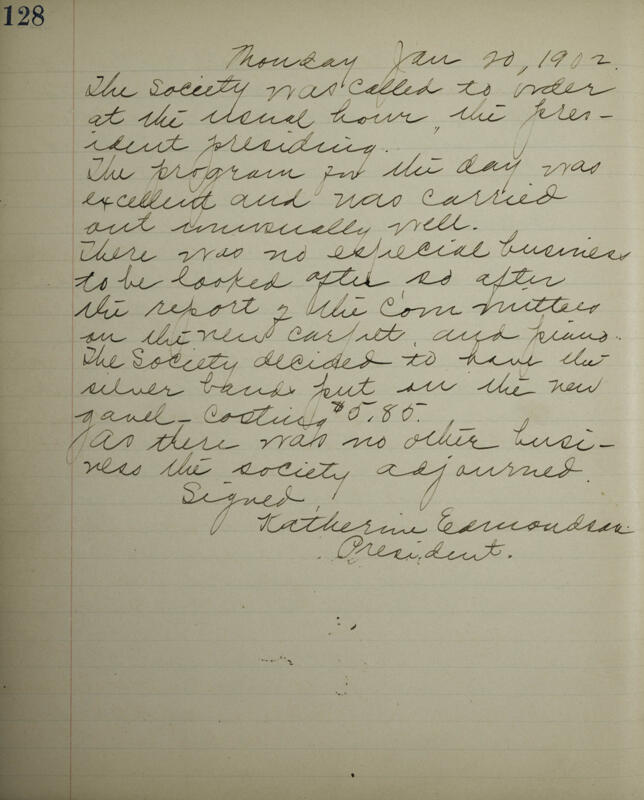 128
Monday Jan 20, 1902.
The Society was called to order
at the usual hour, the pres-
ident presiding.
The program for the day was
excellent and was carried
out unusually well.
There was no especial business
to be looked after, so after
the report of the Committees
on the new carpet, and piano.
The Society decided to have the
silver bands put on the new
gavel - costing $5.85.
As there was no other busi-
ness the society adjourned.
Signed,
Katherine Edmondson.
President.